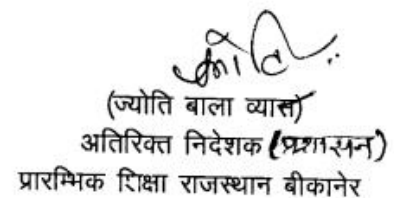 ज्योति
(ज्योति बाला व्यास)
अतिरिक्त निदेशक (प्रशासन)
प्रारम्भिक शिक्षा राजस्थान बीकानेर